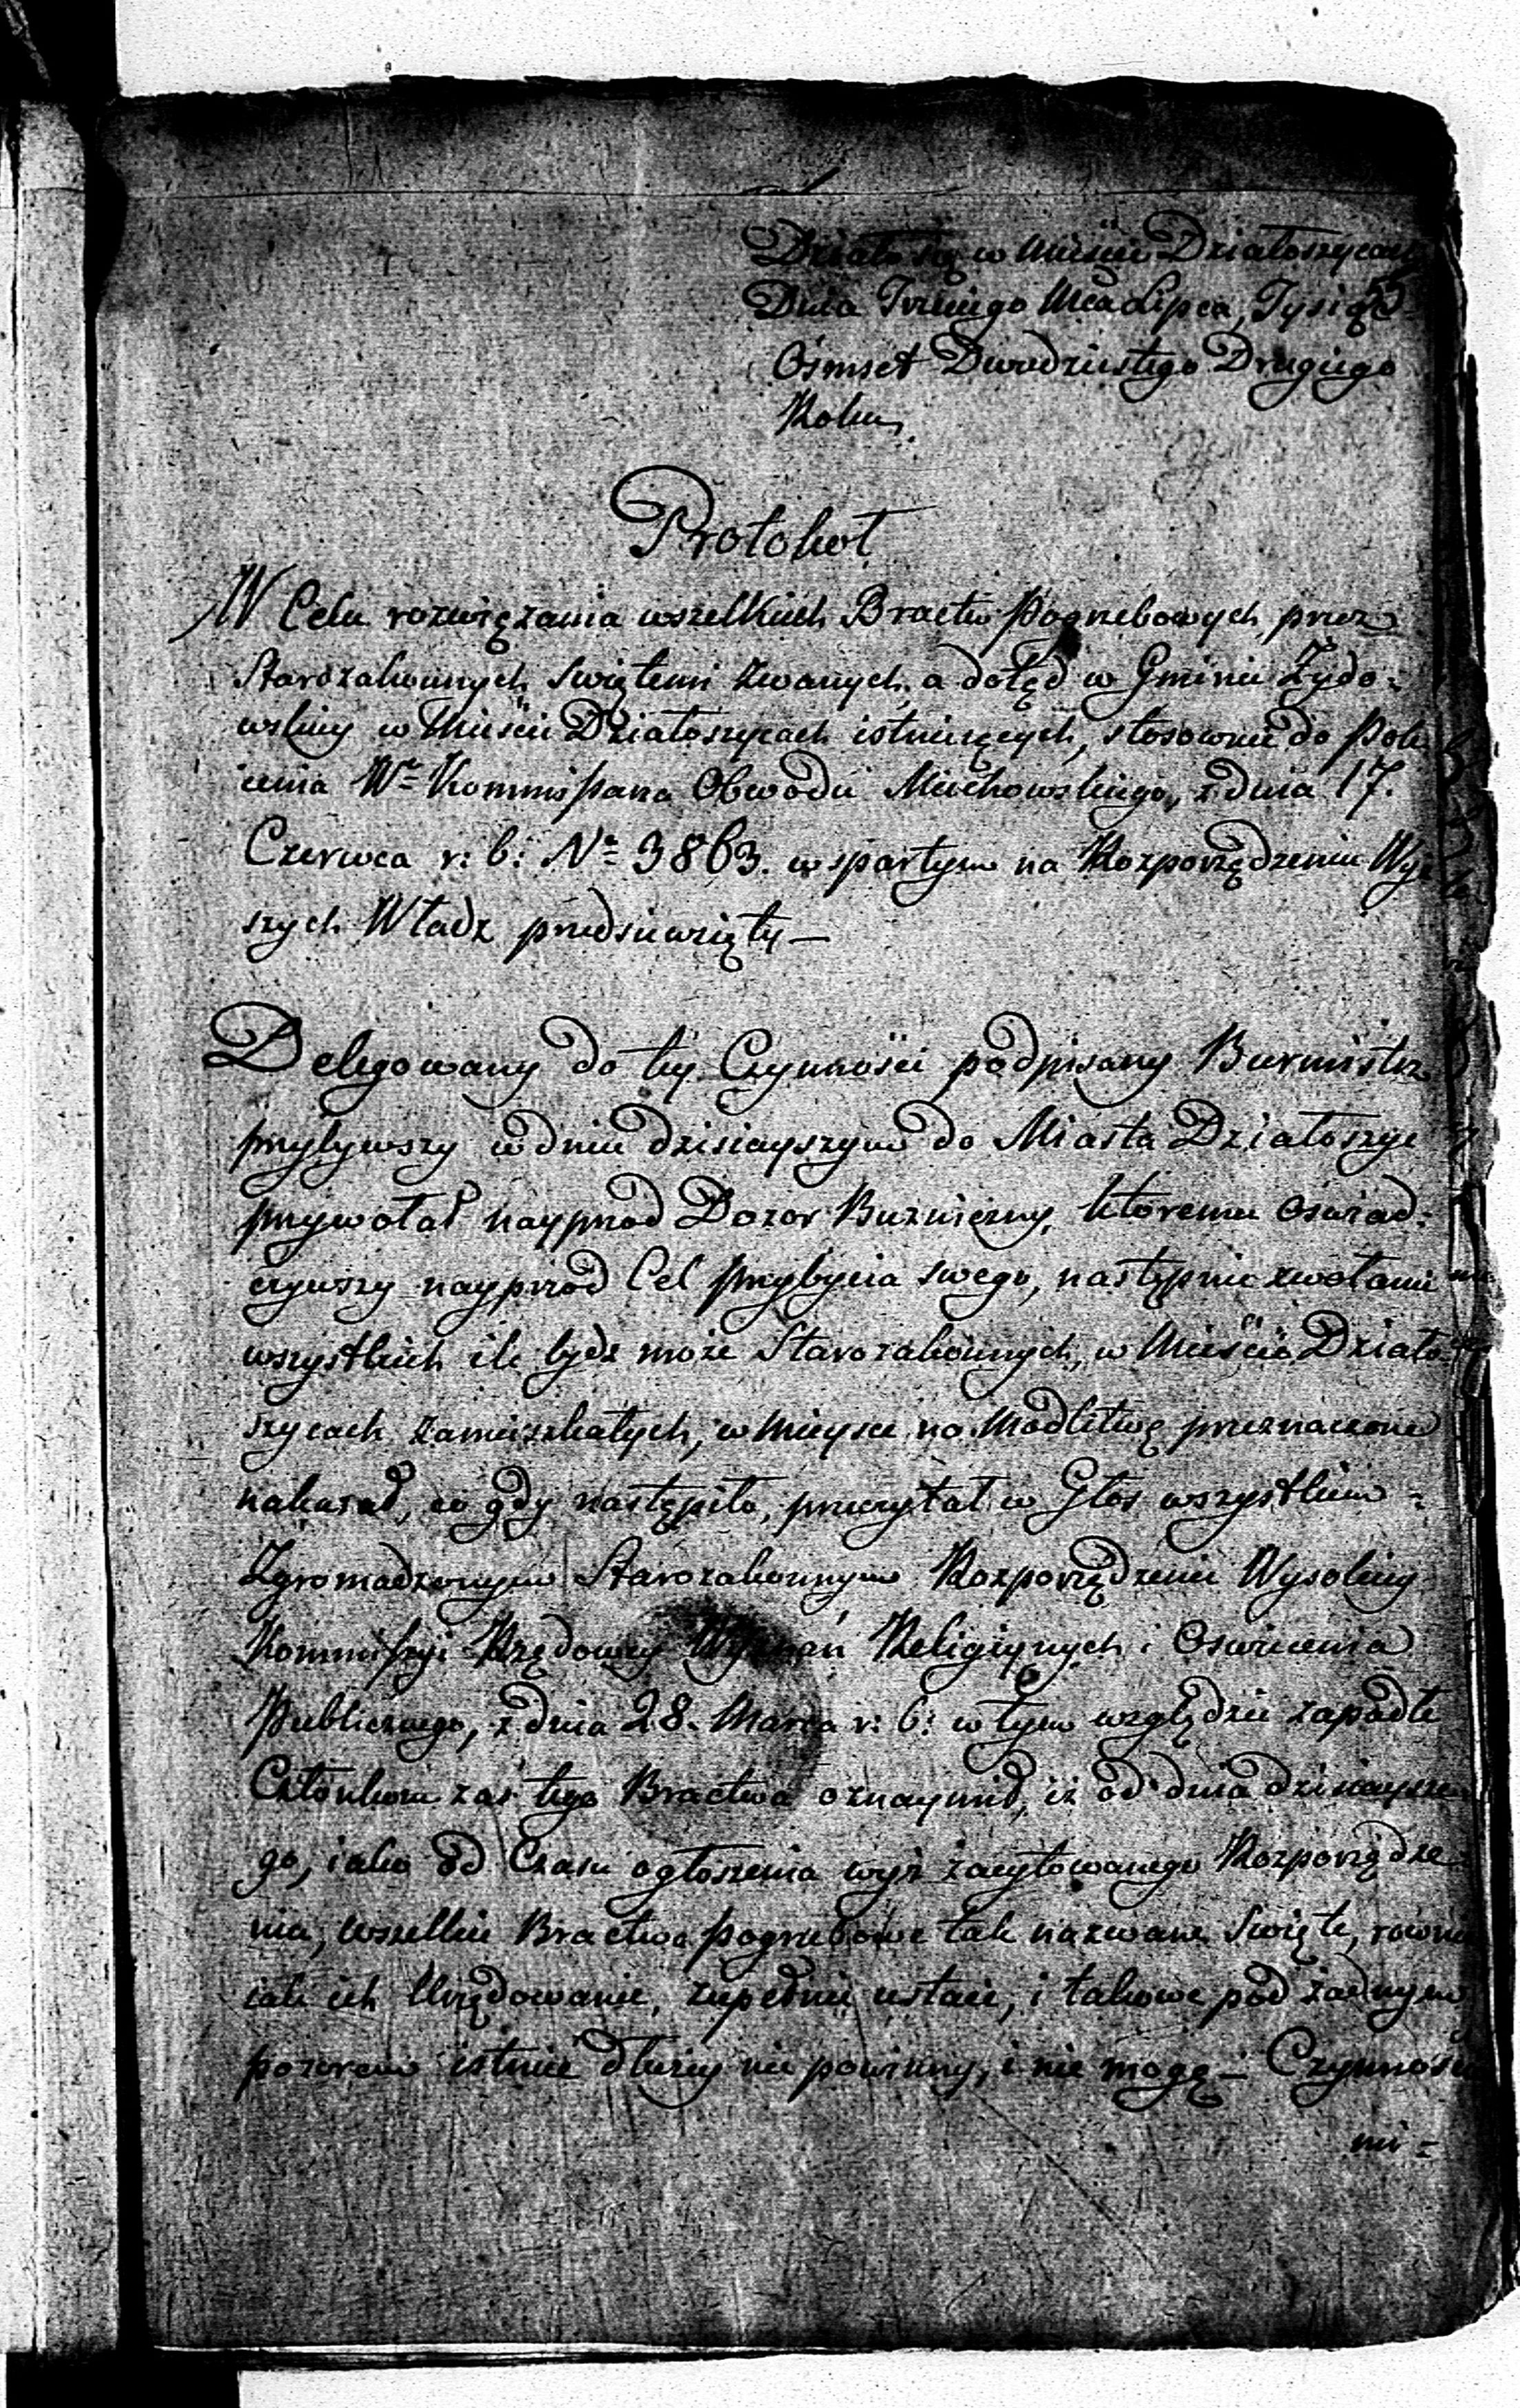 Działo się w Mieście Działoszycach
Dnia Trzeciego Mca Lipca, Tysiąc
Ośmset Dwudziestego Drugiego
Roku
Protokoł
W Celu rozwiązania wszelkich Bractw Pogrzebowych przez
Starozakonnych swiętemi zwanych, a dotąd w Gminie Żydo-
wskiey w Mieście Działoszycach istnieiących, stosownie do Pole
cenia Wo Kommissarza Obwodu Miechowskiego, z dnia 17.
Czerwca r: b: No 3863. wspartym na Rozporządzeniu Wyż
szych Władz przedsiewzięty —
Delegowany do tey Czynności podpisany Burmistrz
przybywszy w dniu dzisieyszym do Miasta Działoszyc
przywołał nayprzod Dozor Bużniczny, ktoremu oświad-
czywszy nayprzod Cel przybycia swego, następnie zwołanie
wszystkich ile bydź może Starozakonnych, w Mieście Działo
szycach zamieszkałych, w mieysce na Modlitwę przeznaczone
nakazał, co gdy nastąpiło, przeczytał w Głos wszystkim -
Zgromadzonym Starozakonnym Rozporządzenie Wysokiey
Kommissyi Rządowey Wyznań Religiynych i Oswiecenia
Publicznego, z dnia 28. Marca r: b: w tym względzie zapadłe
Członkom zaś tego Bractwa oznaymił, iż od dnia dzisieysze
go, iako od Czasu ogłoszenia wyż zacytowanego Rozporządze
nia, wszelkie Bractwa pogrzebowe tak nazwane Swięte, rownie
iak ich Urzędowanie, zupełnie ustaie, i takowe pod żadnym
pozorem istnieć dłużey nie powinny, i nie mogą — Czynność
ni -